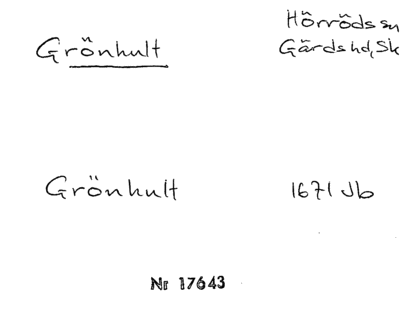 Grönhult
Hörröds sn
Gärds hd, Sk
Grönhult
1671 Jb
Nr 17643